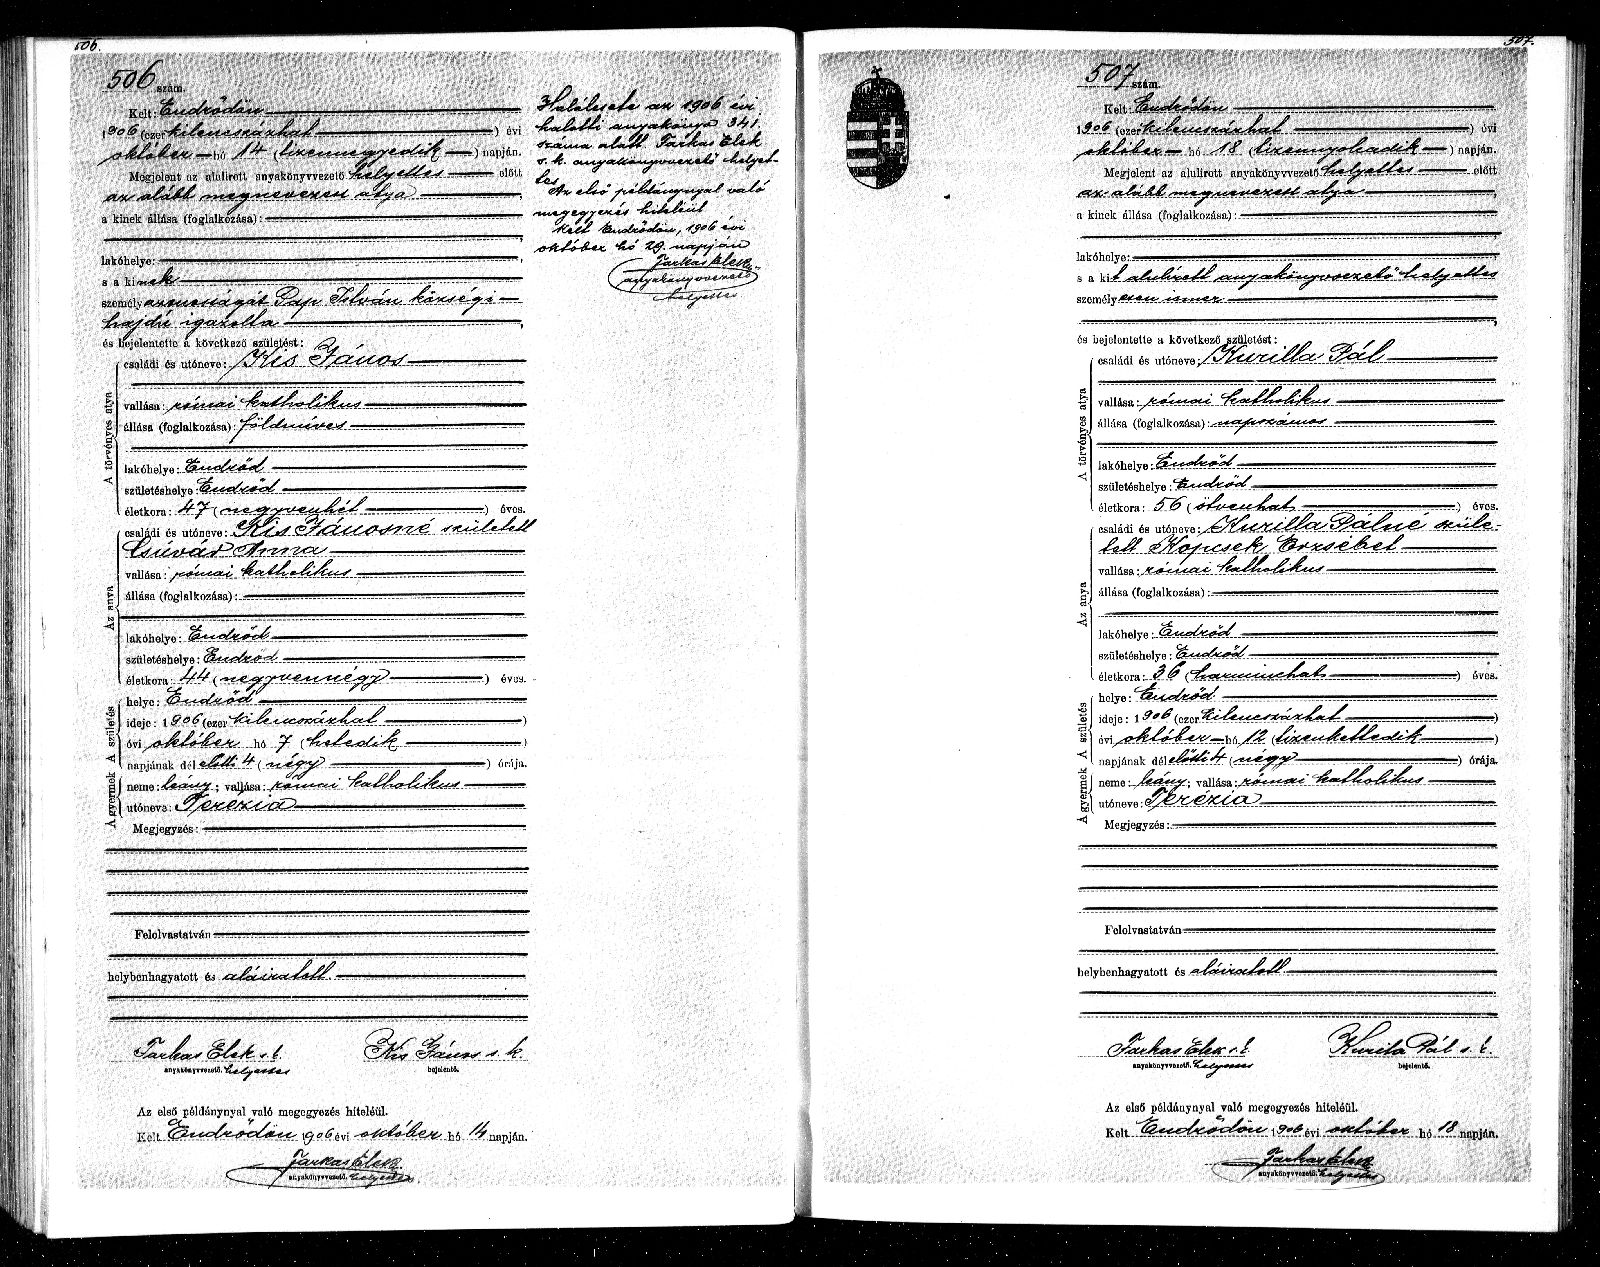 506.
506 szám.
Kelt Endrődön
1906 (ezer kilencszázhat ) évi
október hó 14 (tizennegyedik ) napján.
Megjelent az alulirott anyakönyvvezető helyettes előtt
az alább megnevezett atya
a kinek állása (foglalkozása):
lakóhelye:
s a kinek
személyazonosságát Pap István községi
hajdú igazolta
és bejelentette a következő születést:
A törvényes atya
családi és utóneve: Kis János
vallása: római katholikus
állása (foglalkozása): földmíves
lakóhelye: Endrőd
születéshelye: Endrőd
életkora: 47 (negyvenhét ) éves.
Az anya
családi és utóneve: Kis Jánosné született
Csúvár Anna
vallása: római katholikus
állása (foglalkozása):
lakóhelye: Endrőd
születéshelye: Endrőd
életkora: 44 (negyvennégy ) éves.
A gyermek A születés
helye: Endrőd
ideje: 1906 (ezer kilencszázhat )
évi október hó 7 (hetedik )
napjának dél előtti 4 (négy ) órája.
neme: leány; vallása: római katholikus
utóneve: Terézia
Megjegyzés:
Felolvastatván
helybenhagyatott és aláiratott.
Farkas Elek s. k. Kis János s. k.
anyakönyvvezető. helyettes bejelentő.
Az első példánynyal való megegyezés hiteléül.
Kelt Endrődön 1906 évi október hó 14 napján.
Farkas Elek
anyakönyvvezető. helyettes
Halálesete az 1906 évi
halotti anyakönyv 341
száma alatt Farkas Elek
s. k. anyakönyvvezető helyet-
tes
Az első példánynyal való
megegyezés hiteléül
kelt Endrődön, 1906 évi
október hó 29. napján
Farkas Elek
anyakönyvvezető
helyettes
507.
507 szám.
Kelt Endrődön
1906 (ezer kilencszázhat ) évi
október hó 18 (tizennyolcadik ) napján.
Megjelent az alulirott anyakönyvvezető helyettes előtt
az alább megnevezett atya
a kinek állása (foglalkozása):
lakóhelye:
s a kit alulírott anyakönyvvezető helyettes
személyesen ismer
és bejelentette a következő születést:
A törvényes atya
családi és utóneve: Kurilla Pál
vallása: római katholikus
állása (foglalkozása): napszámos
lakóhelye: Endrőd
születéshelye: Endrőd
életkora: 56 (ötvenhat ) éves.
Az anya
családi és utóneve: Kurilla Pálné szüle-
tett Kopcsek Erzsébet
vallása: római katholikus
állása (foglalkozása):
lakóhelye: Endrőd
születéshelye: Endrőd
életkora: 36 (harminchat ) éves.
A gyermek A születés
helye: Endrőd
ideje: 1906 (ezer kilencszázhat )
évi október hó 12 (tizenkettedik )
napjának dél előtti 4 (négy ) órája.
neme: leány; vallása: római katholikus
utóneve: Terézia
Megjegyzés:
Felolvastatván
helybenhagyatott és aláiratott
Farkas Elek s. k. Kurila Pál s. k.
anyakönyvvezető. helyettes bejelentő.
Az első példánynyal való megegyezés hiteléül.
Kelt Endrődön 1906 évi október hó 18 napján.
Farkas Elek
anyakönyvvezető. helyettes